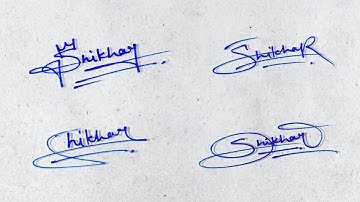 Shikhar
ShikhaR
Shikhar
Shikhar